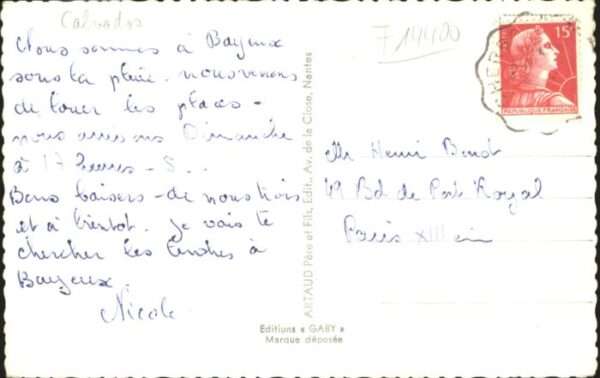 Calvados
F 14400
Nous sommes à Bayeux
sous la pluie. nous venons
de louer les places -
nous arrivons Dimanche
à 17 heures - 8...
Bons baisers - de nous trois
et à bientôt. Je vais te
chercher les timbres à
Bayeux.
Nicole
15F
REPUBLIQUE FRANÇAISE
Mr Henri
49 Bd de Port Royal
Paris XIII
ARTAUD Père et Fils, Edit., Av. de la Close, Nantes
Editions « GABY »
Marque déposée